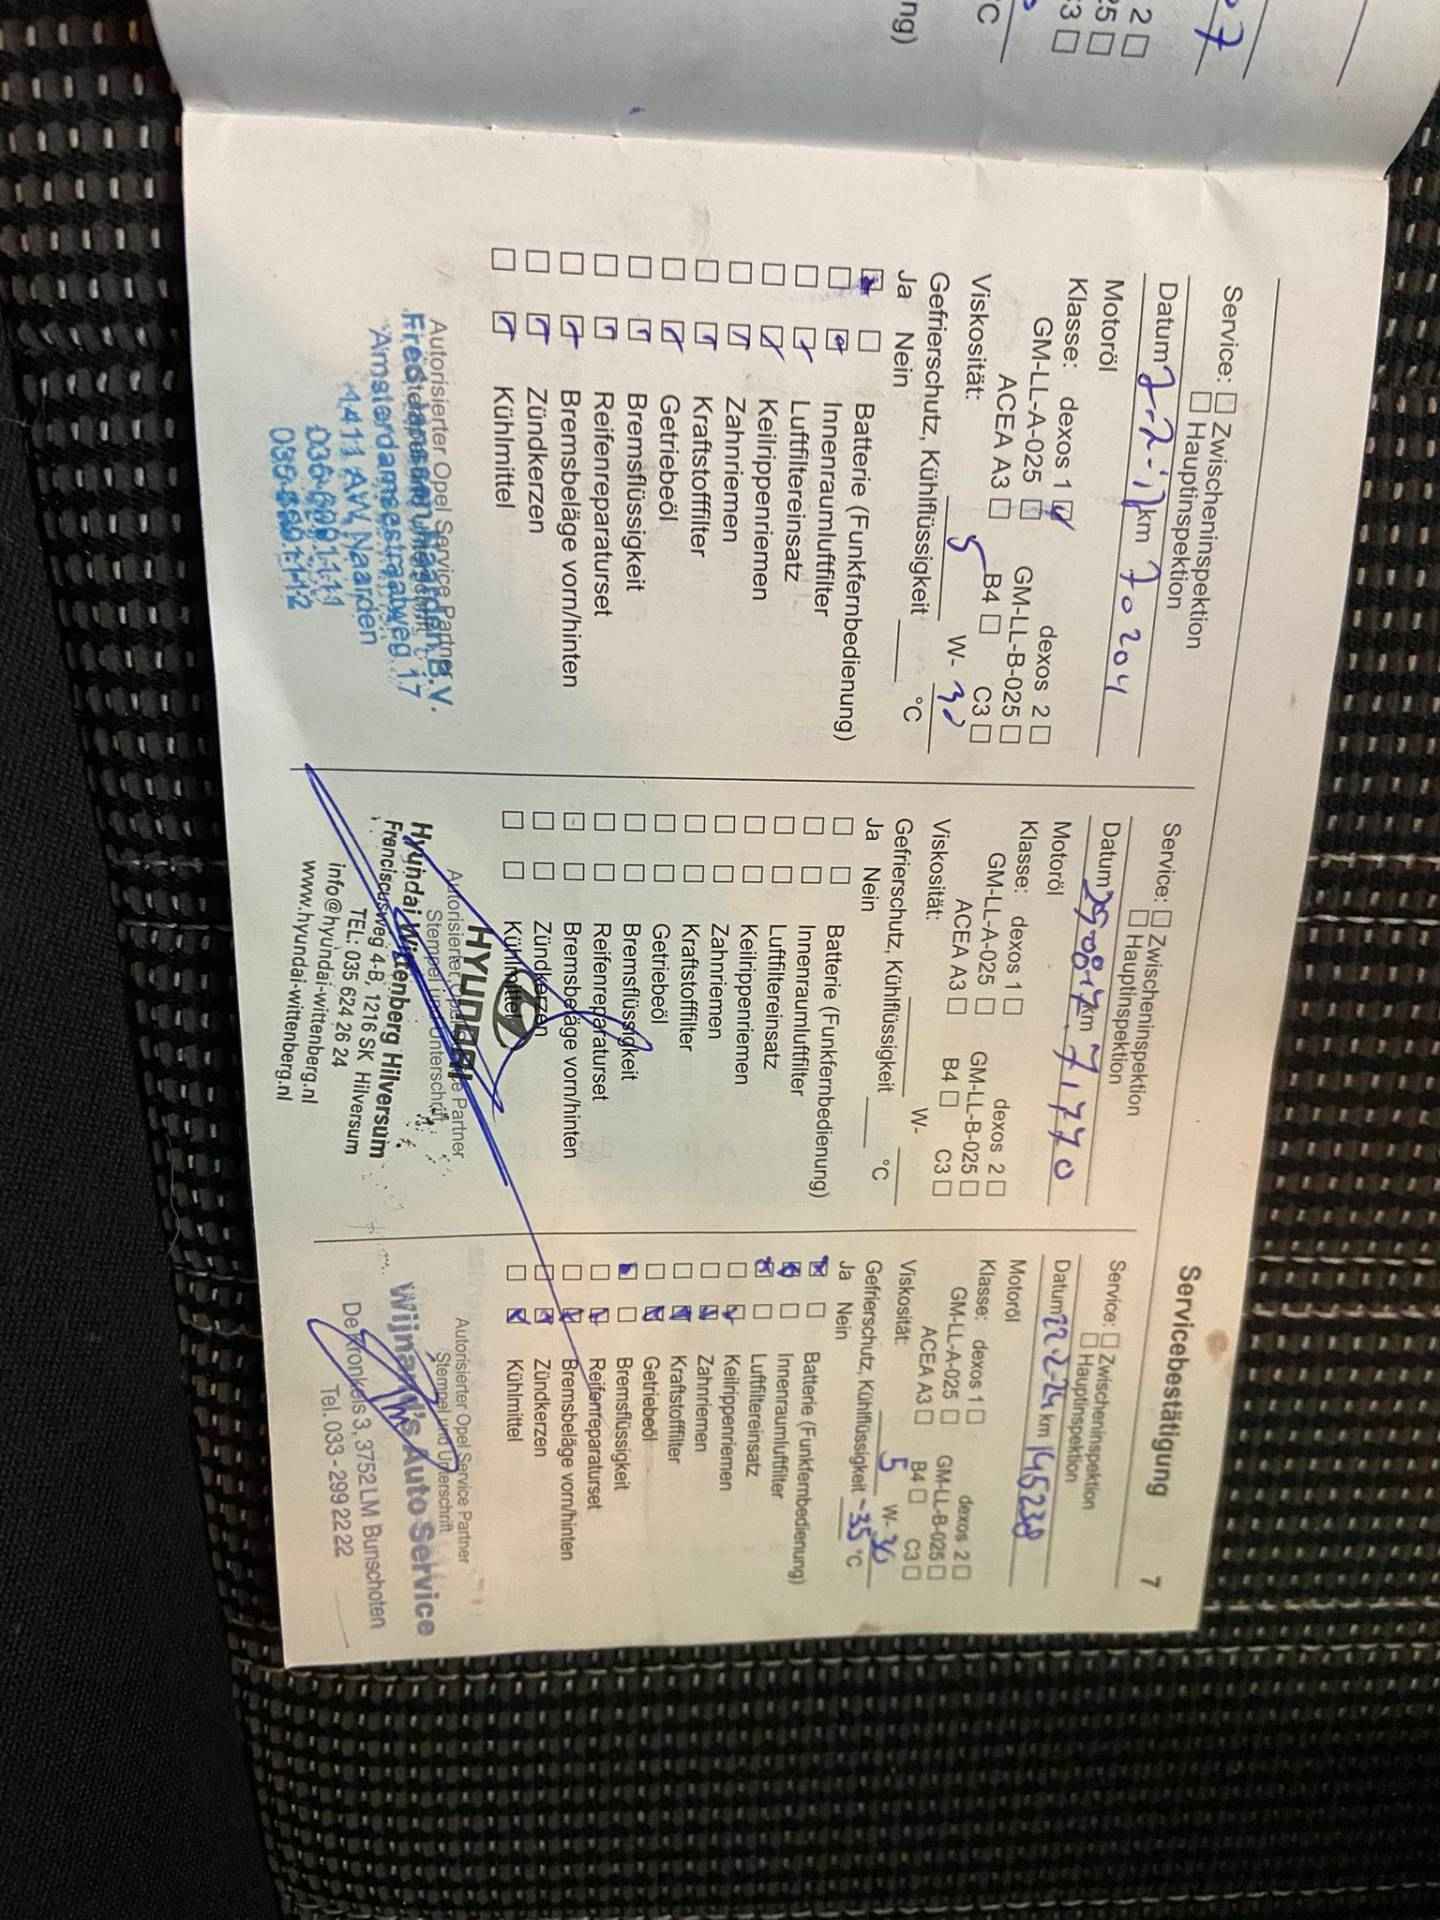 7
2
25
C3
°C
ng)
Servicebestätigung 7
Service: Zwischeninspektion
Hauptinspektion
Datum 7-2-17 km 70204
Motoröl
Klasse: dexos 1 dexos 2
GM-LL-A-025 GM-LL-B-025
ACEA A3 B4 C3
Viskosität: 5 W-30
Gefrierschutz, Kühlflüssigkeit °C
Ja Nein
Batterie (Funkfernbedienung)
Innenraumluftfilter
Luftfiltereinsatz
Keilrippenriemen
Zahnriemen
Kraftstofffilter
Getriebeöl
Bremsflüssigkeit
Reifenreparaturset
Bremsbeläge vorn/hinten
Zündkerzen
Kühlmittel
Autorisierter Opel Service Partner
B.V.
Amsterdamsestraatweg 17
1411 AW Naarden
Service: Zwischeninspektion
Hauptinspektion
Datum 25-08-17 km 71770
Motoröl
Klasse: dexos 1 dexos 2
GM-LL-A-025 GM-LL-B-025
ACEA A3 B4 C3
Viskosität: W-
Gefrierschutz, Kühlflüssigkeit °C
Ja Nein
Batterie (Funkfernbedienung)
Innenraumluftfilter
Luftfiltereinsatz
Keilrippenriemen
Zahnriemen
Kraftstofffilter
Getriebeöl
Bremsflüssigkeit
Reifenreparaturset
Bremsbeläge vorn/hinten
Zündkerzen
Kühlmittel
Autorisierter Opel Service Partner
Stempel und Unterschrift
HYUNDAI
Hyundai Wittenberg Hilversum
Franciscusweg 4-B, 1216 SK Hilversum
TEL: 035 624 26 24
info@hyundai-wittenberg.nl
www.hyundai-wittenberg.nl
Service: Zwischeninspektion
Hauptinspektion
Datum 22-2-24 km 145238
Motoröl
Klasse: dexos 1 dexos 2
GM-LL-A-025 GM-LL-B-025
ACEA A3 B4 C3
Viskosität: 5 W-30
Gefrierschutz, Kühlflüssigkeit -35 °C
Ja Nein
Batterie (Funkfernbedienung)
Innenraumluftfilter
Luftfiltereinsatz
Keilrippenriemen
Zahnriemen
Kraftstofffilter
Getriebeöl
Bremsflüssigkeit
Reifenreparaturset
Bremsbeläge vorn/hinten
Zündkerzen
Kühlmittel
Autorisierter Opel Service Partner
Stempel und Unterschrift
Wijnand's Auto Service
De Kronkels 3, 3752 LM Bunschoten
Tel. 033 - 299 22 22